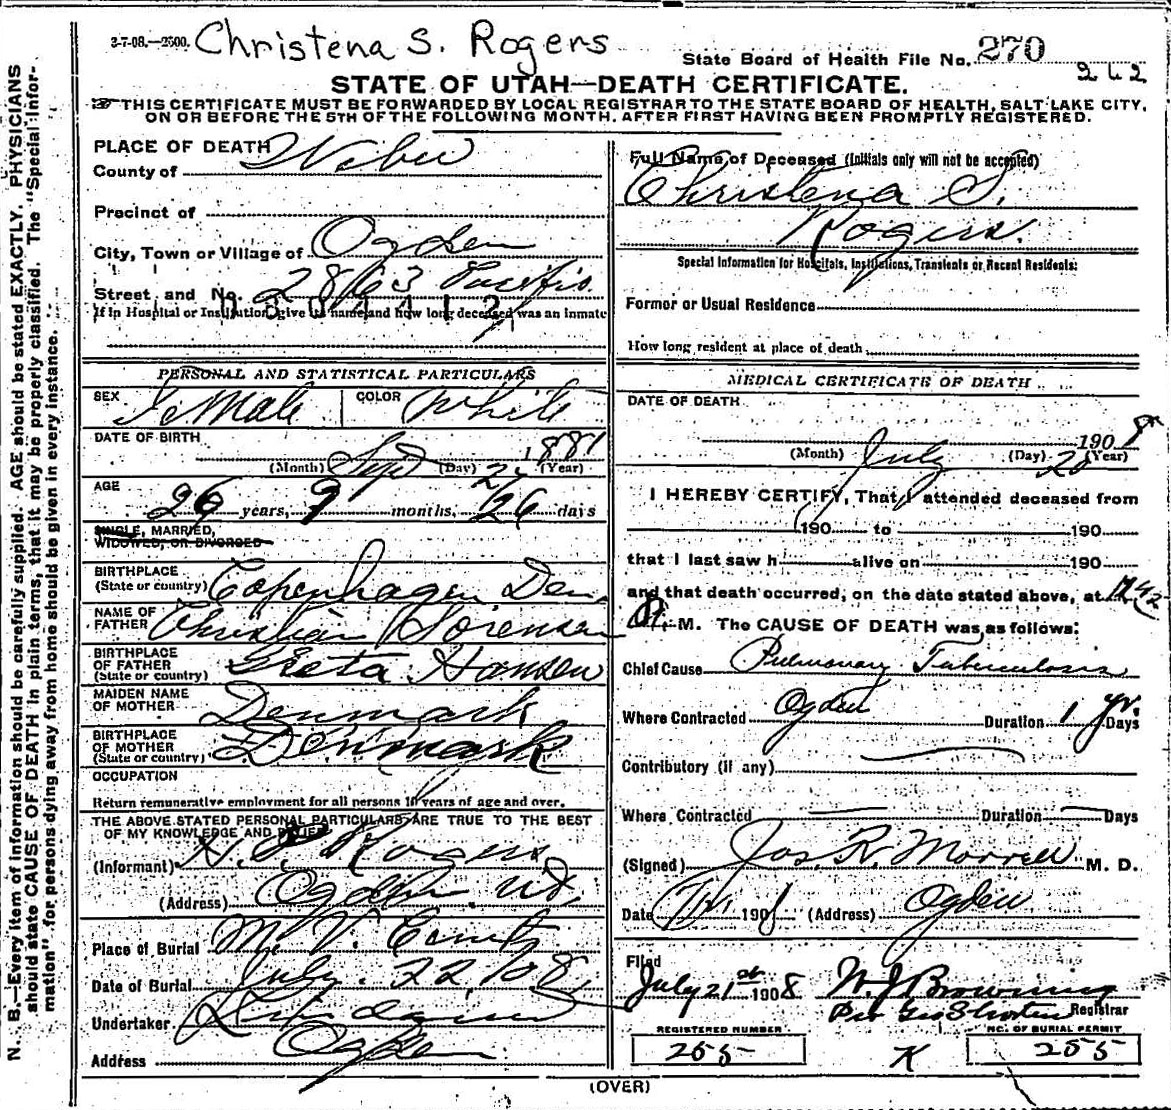 3-7-08.—2500. Christena S. Rogers
State Board of Health File No. 270
262
STATE OF UTAH—DEATH CERTIFICATE.
THIS CERTIFICATE MUST BE FORWARDED BY LOCAL REGISTRAR TO THE STATE BOARD OF HEALTH, SALT LAKE CITY,
ON OR BEFORE THE 5TH OF THE FOLLOWING MONTH, AFTER FIRST HAVING BEEN PROMPTLY REGISTERED.
N. B.—Every item of information should be carefully supplied. AGE should be stated EXACTLY. PHYSICIANS
should state CAUSE OF DEATH in plain terms, that it may be properly classified. The "Special Infor-
mation" for persons dying away from home should be given in every instance.
PLACE OF DEATH
County of Weber
Precinct of
City, Town or Village of Ogden
Street and No. 2863
If in Hospital or Institution, give its name and how long deceased was an inmate
PERSONAL AND STATISTICAL PARTICULARS
SEX Female COLOR White
DATE OF BIRTH
(Month) Sept (Day) (Year) 1881
AGE
26 years, 9 months, 26 days
SINGLE, MARRIED,
WIDOWED, OR DIVORCED
BIRTHPLACE
(State or country) Copenhagen Den
NAME OF
FATHER Christian Sorensen
BIRTHPLACE
OF FATHER
(State or country) Greta Hansen
MAIDEN NAME
OF MOTHER Denmark
BIRTHPLACE
OF MOTHER
(State or country) Denmark
OCCUPATION
Return remunerative employment for all persons 10 years of age and over.
THE ABOVE STATED PERSONAL PARTICULARS ARE TRUE TO THE BEST
OF MY KNOWLEDGE AND BELIEF
(Informant) Rogers
(Address) Ogden Ut,
Place of Burial
Date of Burial July 22, 08,
Undertaker
Address Ogden
Full Name of Deceased (Initials only will not be accepted)
Christena S.
Rogers.
Special Information for Hospitals, Institutions, Transients or Recent Residents:
Former or Usual Residence
How long resident at place of death
MEDICAL CERTIFICATE OF DEATH
DATE OF DEATH
1908
(Month) July (Day) 20 (Year)
I HEREBY CERTIFY, That I attended deceased from
190 to 190
that I last saw h alive on 190
and that death occurred, on the date stated above, at
P. M. The CAUSE OF DEATH was as follows:
Chief Cause Pulmonary Tuberculosis
Where Contracted Ogden Duration 1 yr. Days
Contributory (if any)
Where Contracted Duration Days
(Signed) Jos. R. Morrell M. D.
Date 190 (Address) Ogden
Filed
July 21st 1908 W. J. Browning
Per Registrar
REGISTERED NUMBER NO. OF BURIAL PERMIT
255 K 255
(OVER)